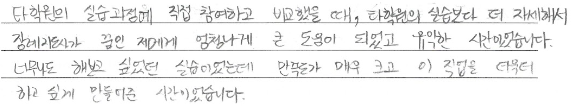 타학원의 실습과정에 직접 참여하고 비교했을 때, 타학원의 실습보다 더 자세해서
장례지도사가 꿈인 저에게 엄청나게 큰 도움이 되었고 유익한 시간이었습니다.
너무나도 해보고 싶었던 실습이었는데 만족도가 매우 크고 이 직업을 더욱더
하고 싶게 만들어준 시간이었습니다.